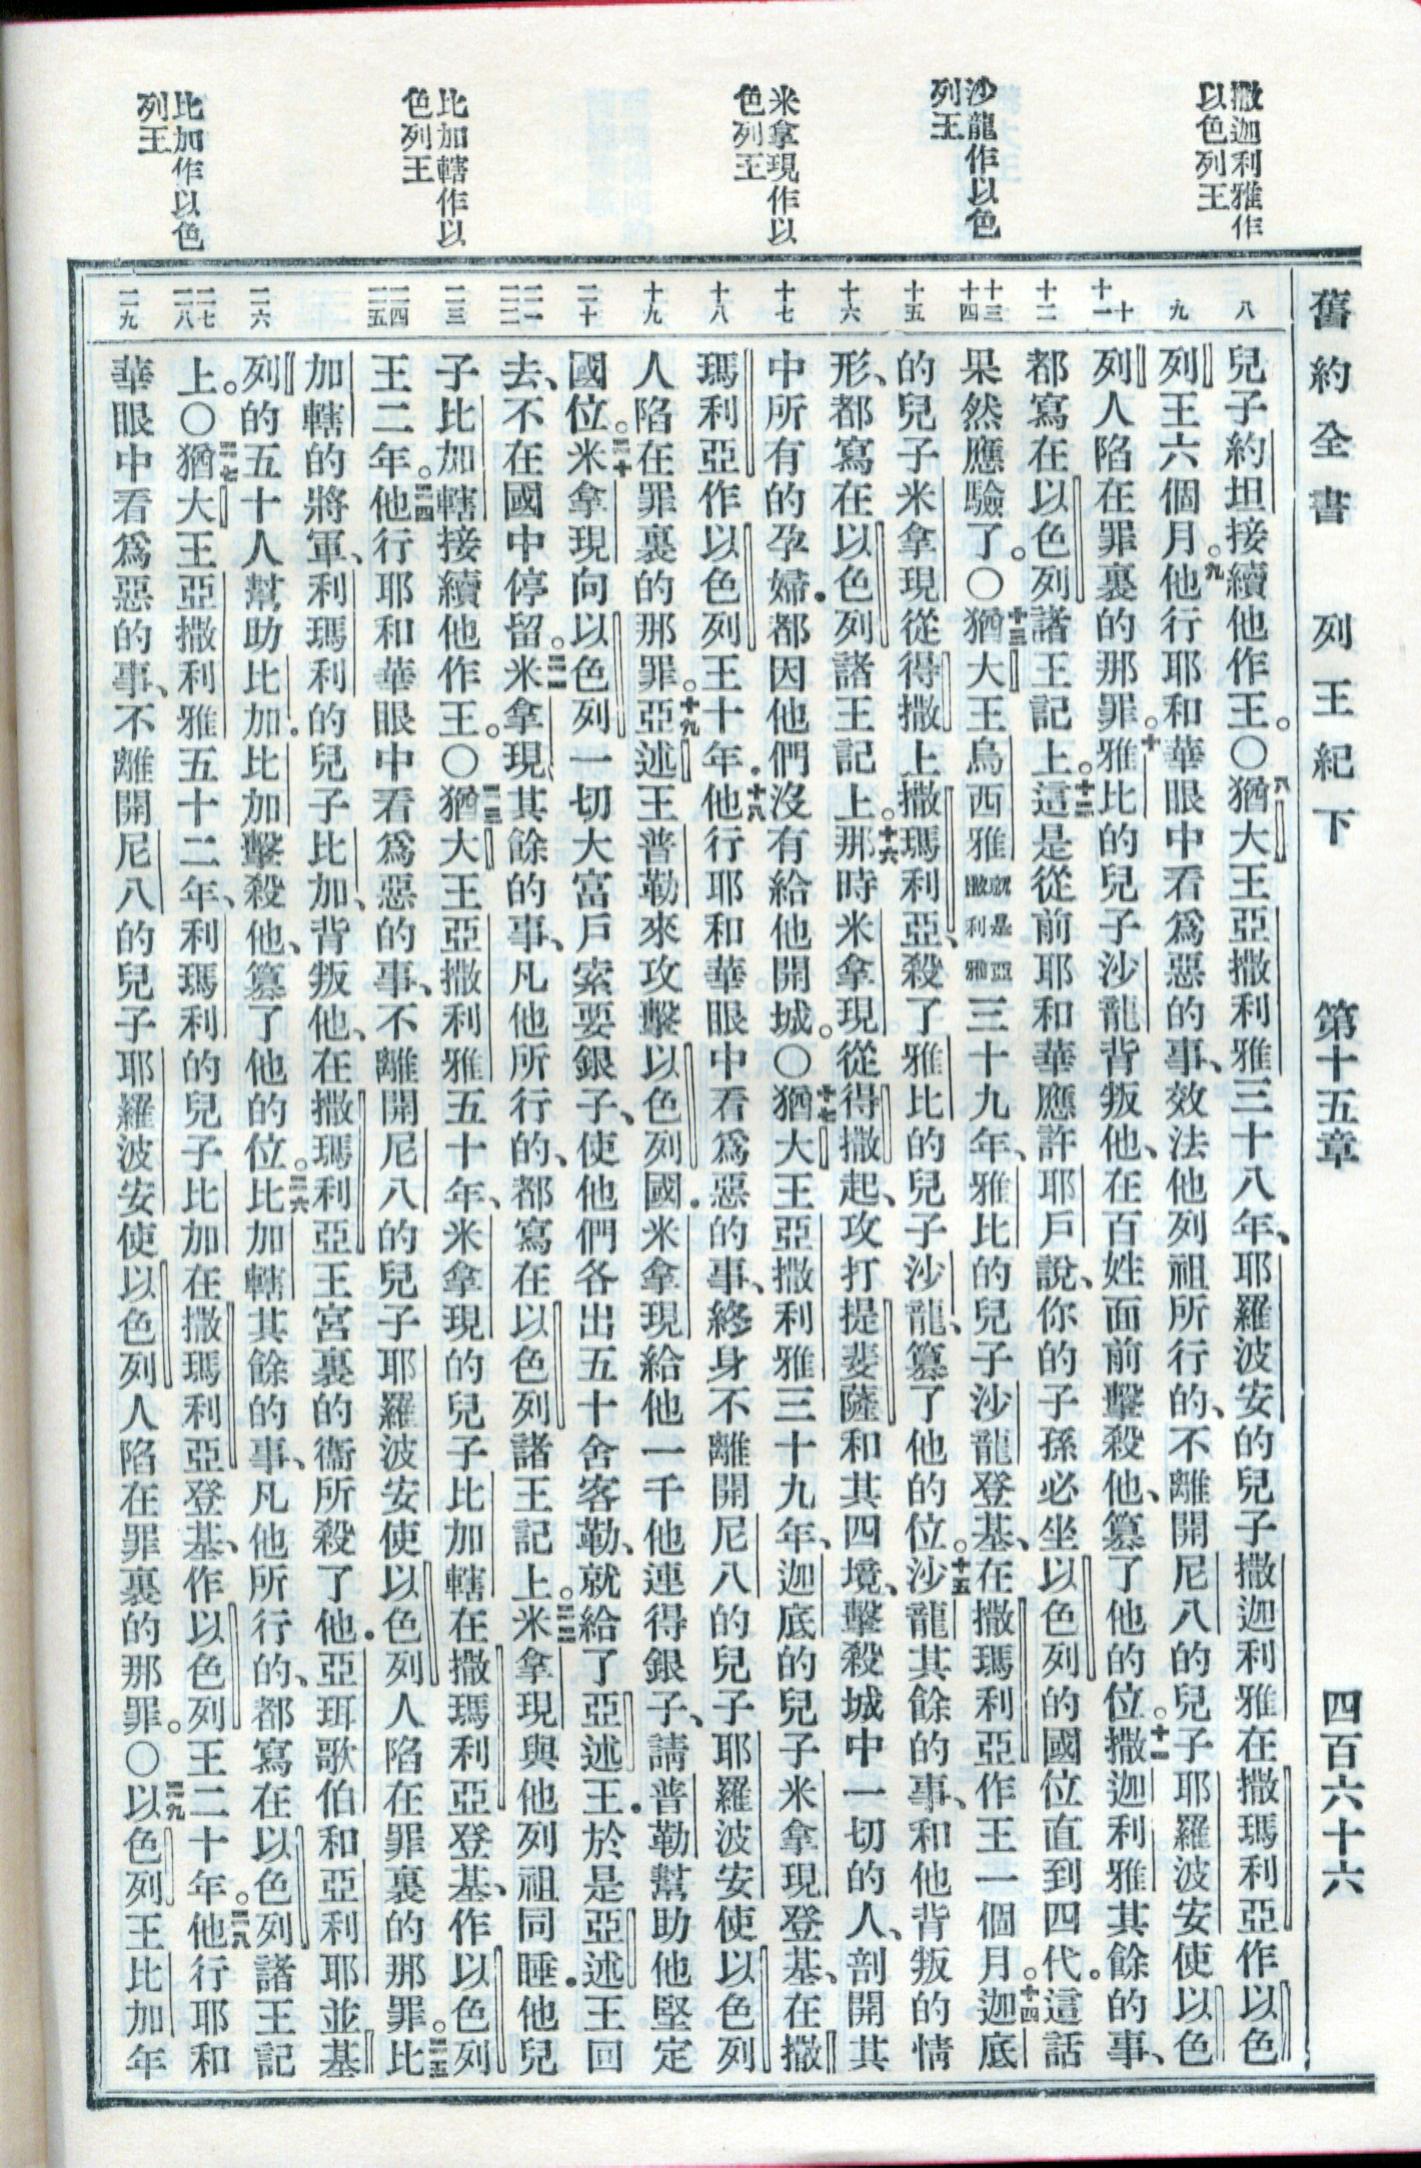 舊約全書 列王紀下 第十五章 四百六十六
撒迦利雅作
以色列王
沙龍作以色
列王
米拿現作以
色列王
比加轄作以
色列王
比加作以色
列王
八
九
十
十一
十二
十三
十四
十五
十六
十七
十八
十九
二十
二一
二二
二三
二四
二五
二六
二七
二八
二九
兒子約坦接續他作王。〇八猶大王亞撒利雅三十八年、耶羅波安的兒子撒迦利雅在撒瑪利亞作以色
列王六個月。九他行耶和華眼中看爲惡的事、效法他列祖所行的、不離開尼八的兒子耶羅波安使以色
列人陷在罪裏的那罪。十雅比的兒子沙龍背叛他、在百姓面前擊殺他、篡了他的位。十一撒迦利雅其餘的事、
都寫在以色列諸王記上。十二這是從前耶和華應許耶戶說、你的子孫必坐以色列的國位直到四代。這話
果然應驗了。〇十三猶大王烏西雅就是亞撒利雅三十九年、雅比的兒子沙龍登基、在撒瑪利亞作王一個月。十四迦底
的兒子米拿現從得撒上撒瑪利亞、殺了雅比的兒子沙龍、篡了他的位。十五沙龍其餘的事、和他背叛的情
形、都寫在以色列諸王記上。十六那時米拿現從得撒起、攻打提斐薩和其四境、擊殺城中一切的人、剖開其
中所有的孕婦．都因他們沒有給他開城。〇十七猶大王亞撒利雅三十九年、迦底的兒子米拿現登基、在撒
瑪利亞作以色列王十年．十八他行耶和華眼中看爲惡的事、終身不離開尼八的兒子耶羅波安使以色列
人陷在罪裏的那罪。十九亞述王普勒來攻擊以色列國．米拿現給他一千他連得銀子、請普勒幫助他堅定
國位。二十米拿現向以色列一切大富戶索要銀子、使他們各出五十舍客勒、就給了亞述王．於是亞述王回
去、不在國中停留。二一米拿現其餘的事、凡他所行的、都寫在以色列諸王記上。二二米拿現與他列祖同睡．他兒
子比加轄接續他作王。〇二三猶大王亞撒利雅五十年、米拿現的兒子比加轄在撒瑪利亞登基、作以色列
王二年。二四他行耶和華眼中看爲惡的事、不離開尼八的兒子耶羅波安使以色列人陷在罪裏的那罪。二五比
加轄的將軍、利瑪利的兒子比加、背叛他、在撒瑪利亞王宮裏的衞所殺了他．亞珥歌伯和亞利耶並基
列的五十人幫助比加．比加擊殺他、篡了他的位。二六比加轄其餘的事、凡他所行的、都寫在以色列諸王記
上。〇二七猶大王亞撒利雅五十二年、利瑪利的兒子比加在撒瑪利亞登基、作以色列王二十年。二八他行耶和
華眼中看爲惡的事、不離開尼八的兒子耶羅波安使以色列人陷在罪裏的那罪。〇二九以色列王比加年